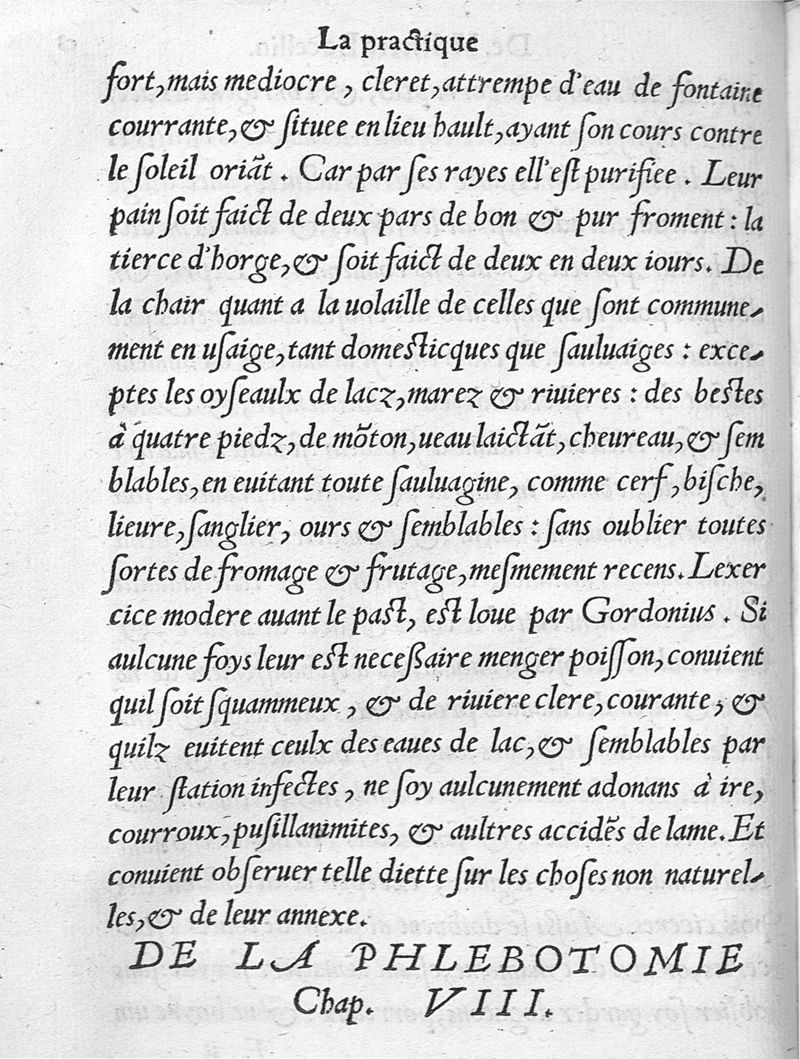 La practique
fort, mais mediocre, cleret, attrempe d'eau de fontaine
courrante, & ſituee en lieu hault, ayant ſon cours contre
le ſoleil oriãt. Car par ſes rayes ell'eſt purifiee. Leur
pain ſoit faict de deux pars de bon & pur froment: la
tierce d'horge, & ſoit faict de deux en deux iours. De
la chair quant a la uolaille de celles que ſont commune-
ment en uſaige, tant domeſticques que ſauluaiges: exce-
ptes les oyſeaulx de lacz, marez & riuieres: des beſtes
à quatre piedz, de mõton, ueau laictãt, cheureau, & ſem
blables, en euitant toute ſauluagine, comme cerf, biſche,
lieure, ſanglier, ours & ſemblables: ſans oublier toutes
ſortes de fromage & frutage, meſmement recens. Lexer
cice modere auant le paſt, eſt loue par Gordonius. Si
aulcune foys leur eſt neceſſaire menger poiſſon, conuient
quil ſoit ſquammeux, & de riuiere clere, courante, &
quilz euitent ceulx des eaues de lac, & ſemblables par
leur ſtation infectes, ne ſoy aulcunement adonans à ire,
courroux, puſillanimites, & aultres accidẽs de lame. Et
conuient obſeruer telle diette ſur les choſes non naturel-
les, & de leur annexe.
DE LA PHLEBOTOMIE
Chap. VIII.